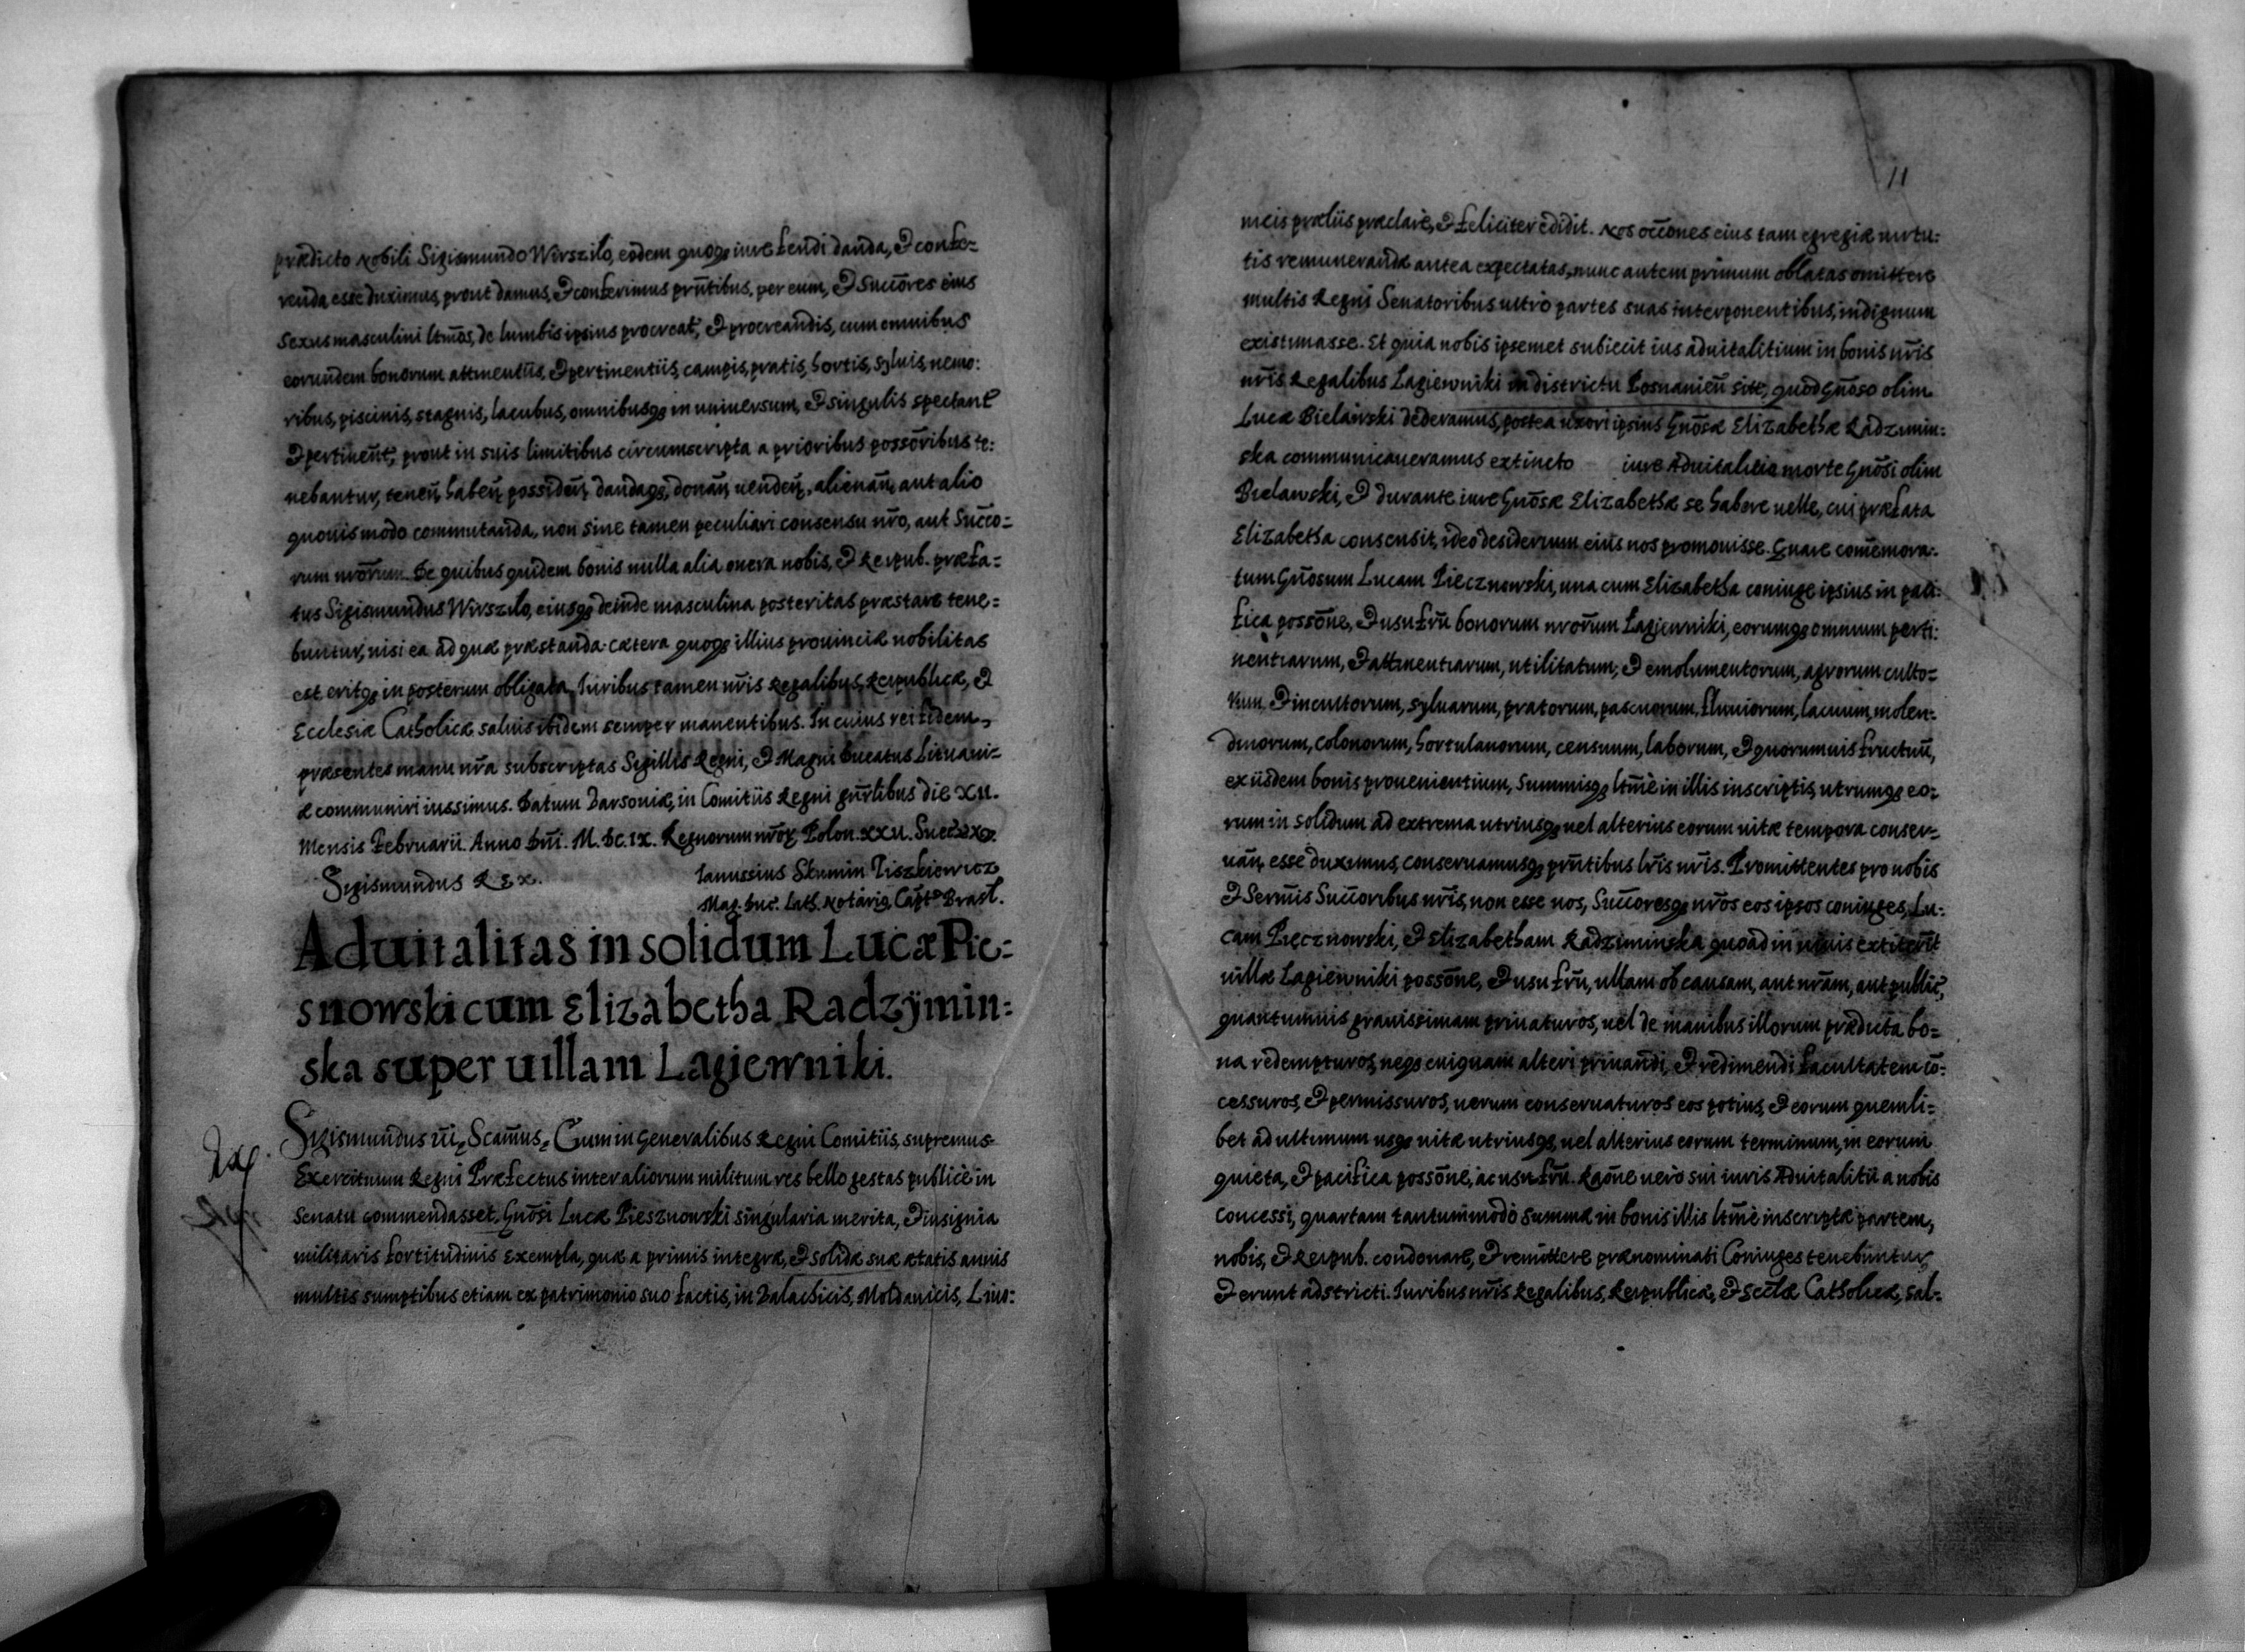 prædicto Nobili Sigismundo Wirszilo, eodem quoqȝ iure feudi danda, & confe=
renda esse duximus, prout damus, & conferimus pn̄tibus, per eum, & Succōres eius
Sexus masculini ltm̄os, de lumbis ipsius procreat', & procreandis, cum omnibus
eorundem bonorum attinentiis, & pertinentiis, campis, pratis, hortis, syluis, nemo:
ribus, piscinis, stagnis, lacubus, omnibusqȝ in uniuersum, & singulis spectant'
& pertineñt, prout in suis limitibus circumscripta a prioribus possōribus te:
nebantur, teneñ, habeñ, possideñ, dandaqȝ, donañ, uendeñ, alienañ, aut alio
quouis modo commutanda, non sine tamen peculiari consensu nr̄o, aut Succo=
rum nrōrum. De quibus quidem bonis nulla alia onera nobis, & Reipub. præfa=
tus Sigismundus Wirszilo, eiusqȝ deinde masculina posteritas præstare tene=
buntur, nisi ea ad quæ præstanda cætera quoqȝ illius prouinciæ nobilitas
est eritqȝ in posterum obligata, Iuribus tamen nr̄is Regalibus, Reipublicæ, &
Ecclesiæ Catholicæ saluis ibidem semper manentibus. In cuius rei fidem,
præsentes manu nr̄a subscriptas Sigillis Regni, & Magni Ducatus Lituani=
æ communiri iussimus. Datum Varsouiæ, in Comitiis Regni gn̄rlibus die XII.
Mensis Februarii. Anno Dn̄i. M. DC. IX. Regnorum nr̄oȝ Polon. XXII. Suec̄
Sigismundus REX. Ianussius Skumin Tiszkiewicz
Mag. Duc. Lith. Notariȝ, Capt. Brasl.
Aduitalitas in solidum Lucæ Pie:
snowski cum Elizabetha Radzÿmin:
ska super uillam Lagiewniki.
Sigismundus iii, Scam̄us, Cum in Generalibus Regni Comitiis, supremus
Exercituum Regni Præfectus inter aliorum militum res bello gestas publicè in
Senatu commendasset, Gnōsi Lucæ Piesznowski singularia merita, & insignia
militaris fortitudinis exempla, quæ a primis integræ, & solidæ suæ ætatis annis
multis sumptibus etiam ex patrimonio suo factis, in Valachicis, Moldauicis, Liuo:
11
nicis præliis præclarè, & feliciter edidit. Nos occōnes eius tam egregiæ uirtu:
tis remunerandæ antea expectatas, nunc autem primum oblatas omittere
multis Regni Senatoribus ultrò partes suas interponentibus, indignum
existimasse. Et quia nobis ipsemet subiecit ius aduitalitium in bonis nr̄is
nr̄is Regalibus Lagiewniki in districtu Posnanieñ sitte, quod Gn̄oso olim
Lucæ Bielawski dederamus, postea uxori ipsius Gnōsæ Elizabethæ Radzimin:
ska communicaueramus extincto iure Aduitalitio morte Gnōsi olim
Bielawski, & durante iure Gnōsæ Elizabethæ se habere uelle, cui præfata
Elizabetha consensit, ideo desiderium eius nos promouisse. Quare com̄emora:
tum Gn̄osum Lucam Piecznowski, una cum Elizabetha coniuge ipsius in paci:
fica possōne, & usufrū bonorum nrōrum Lagiewniki, eorumqȝ omnium perti:
nentiarum, & attinentiarum, utilitatum, & emolumentorum, agrorum culto=
rum, & incultorum, syluarum, pratorum, pascuorum, fluuiorum, lacuum, molen:
dinorum, colonorum, hortulanorum, censuum, laborum, & quorumuis fructuū,
ex iisdem bonis prouenientium, Summisqȝ ltm̄è in illis inscriptis, utrumqȝ eo:
rum in solidum ad extrema utriusqȝ uel alterius eorum uitæ tempora conser=
uañ, esse duximus, conseruamusqȝ pn̄tibus lr̄is nr̄is. Promittentes pro nobis
& Serm̄is Succōribus nr̄is, non esse nos, Succōresqȝ nr̄os eos ipsos coniuges, Lu:
cam Piecznowski, & Elizabetham Radziminska quoad in uiuis extiterit
uillæ Lagiewniki possōne, & usu frū, ullam ob causam, aut nr̄am, aut public̄,
quantumuis grauissimam priuaturos, uel de manibus illorum prædicta bo=
na redempturos, neqȝ cuiquam alteri priuandi, & redimendi facultatem cō:
cessuros, & permissuros, uerum conseruaturos eos potius, & eorum quemli=
bet ad ultimum usqȝ uitæ utriusqȝ, uel alterius eorum terminum, in eorum
quieta, & pacifica possōne, ac usu frū. Raōne uerò sui iuris Aduitalitii a nobis
concessi, quartam tantummodò summæ in bonis illis ltm̄è inscriptæ partem,
nobis, & Reipub. condonare, & remittere prænominati Coniuges tenebuntur,
& erunt adstricti. Iuribus nr̄is Regalibus, Reipublicæ, & Eccl̄æ Catholicæ, sal=